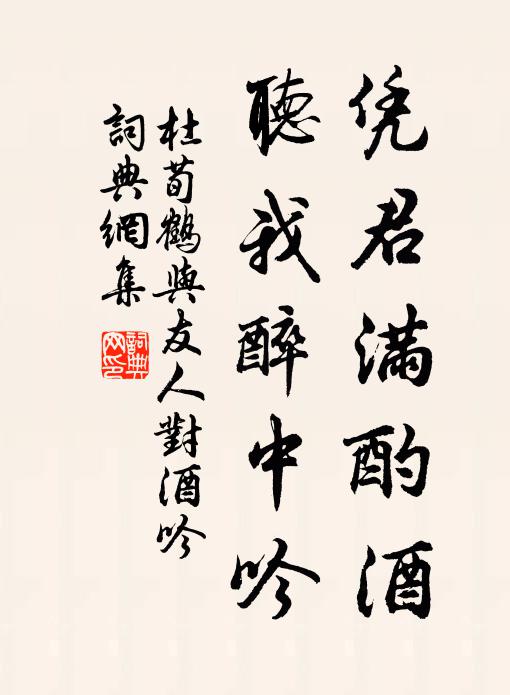 凭君满酌酒
聽我醉中吟
杜荀鶴與友人對酒吟
詞典網集
詞典网印